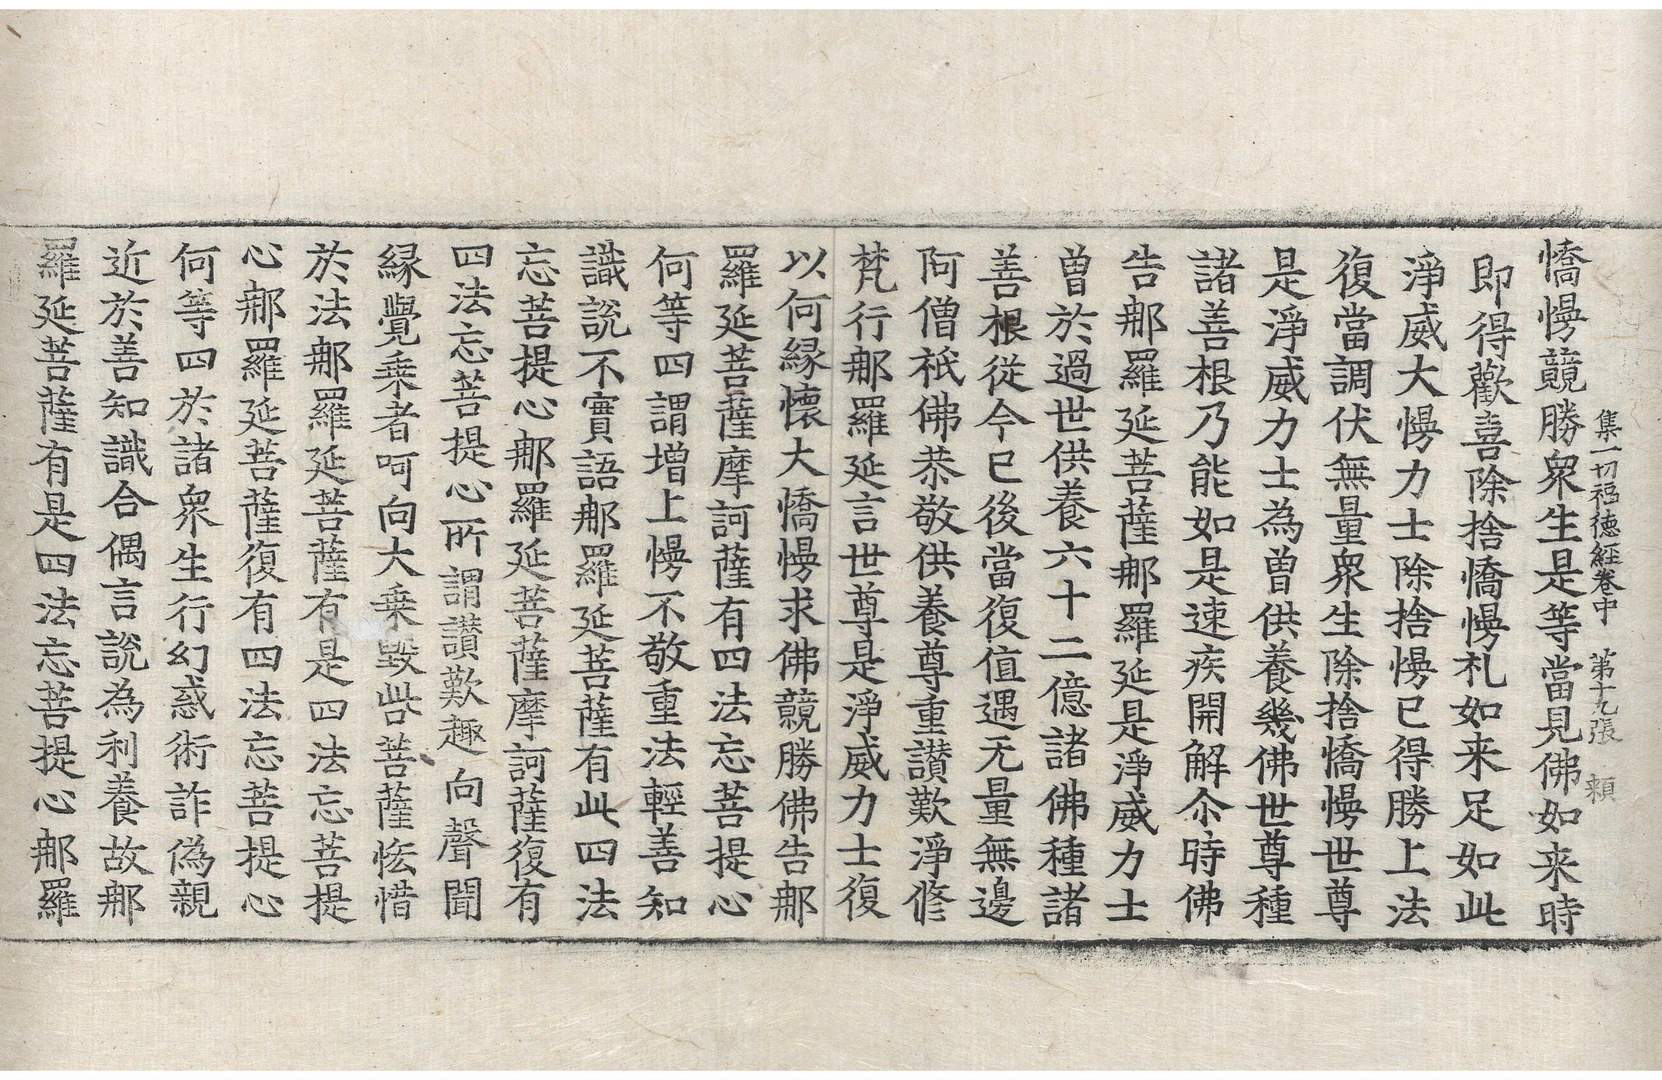 集一切福德經卷中 第十九張 頼
憍慢競勝衆生是等當見佛如来時
即得歡喜除捨憍慢礼如来足如此
淨威大慢力士除捨慢已得勝上法
復當調伏無量衆生除捨憍慢世尊
是淨威力士為曽供養幾佛世尊種
諸善根乃能如是速疾開解尒時佛
告那羅延菩薩那羅延是淨威力士
曽於過世供養六十二億諸佛種諸
善根從今已後當復值遇无量無邊
阿僧祇佛恭敬供養尊重讃歎淨修
梵行那羅延言世尊是淨威力士復
以何縁懷大憍慢求佛競勝佛告那
羅延菩薩摩訶薩有四法忘菩提心
何等四謂増上慢不敬重法輕善知
識說不實語那羅延菩薩有此四法
忘菩提心那羅延菩薩摩訶薩復有
四法忘菩提心所謂讃歎趣向聲聞
縁覺乗者呵向大乗毀呰菩薩悋惜
於法那羅延菩薩有是四法忘菩提
心那羅延菩薩復有四法忘菩提心
何等四於諸衆生行幻惑術詐偽親
近於善知識合偶言說為利養故那
羅延菩薩有是四法忘菩提心那羅